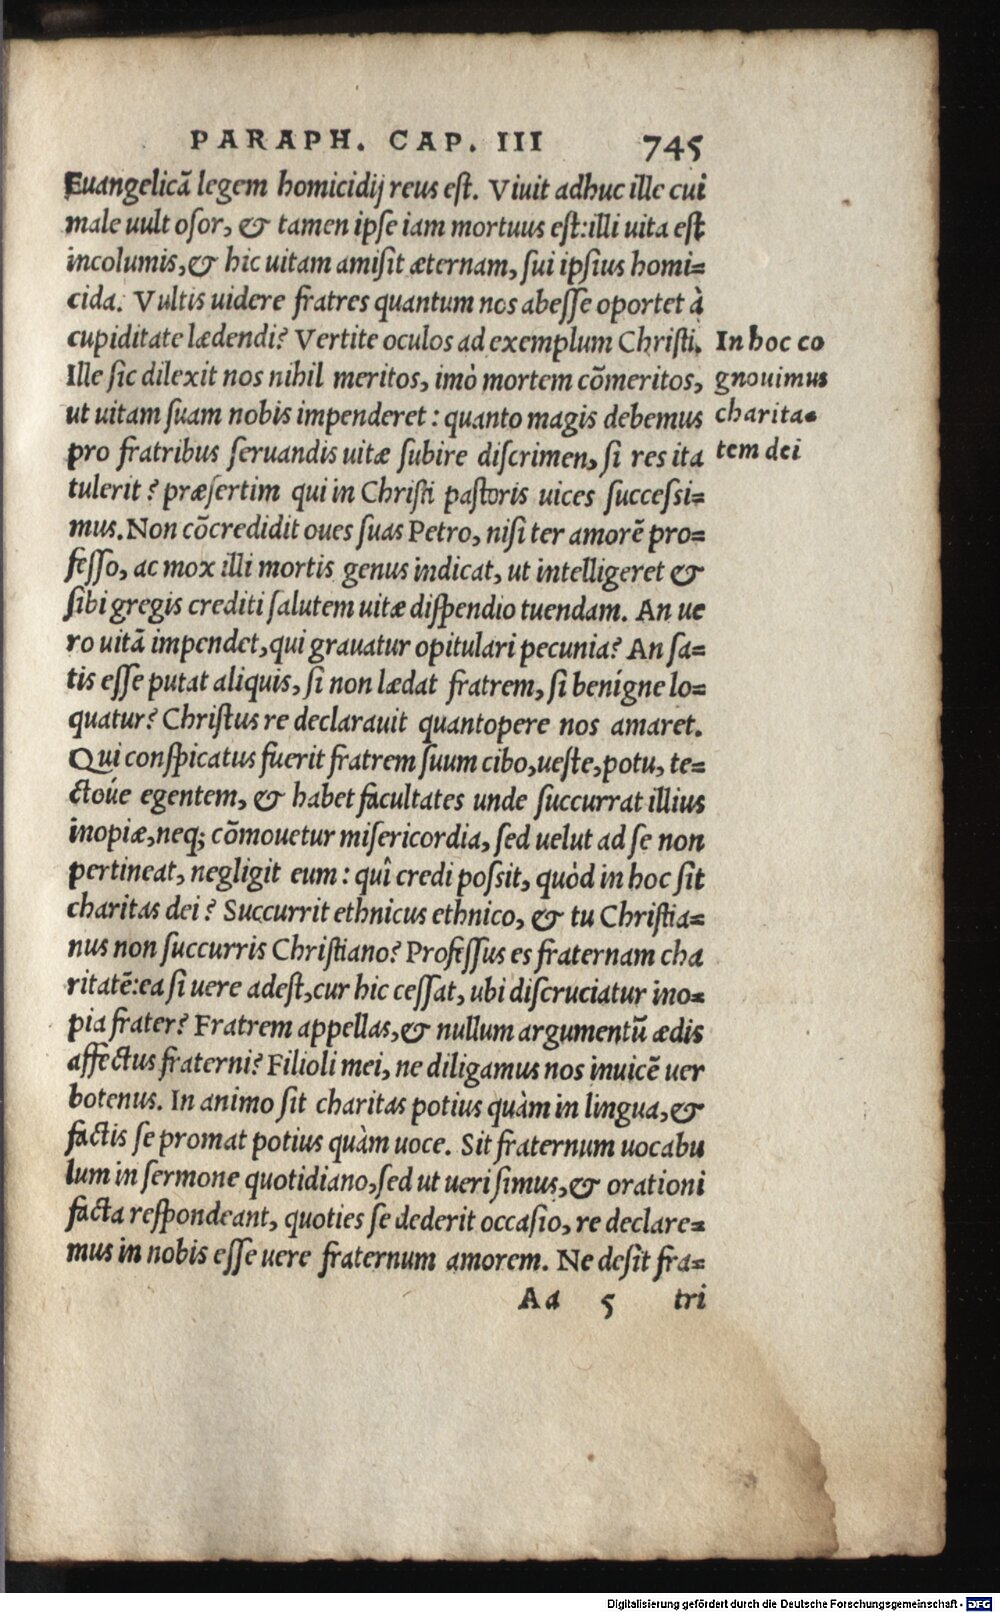 PARAPH. CAP. III 745
Euangelicã legem homicidij reus eſt. Viuit adhuc ille cui
male uult oſor, & tamen ipſe iam mortuus eſt:illi uita eſt
incolumis,& hic uitam amiſit æternam, ſui ipſius homi=
cida. Vultis uidere fratres quantum nos abeſſe oportet à
cupiditate lædendi? Vertite oculos ad exemplum Chriſti.
Ille ſic dilexit nos nihil meritos, imò mortem cõmeritos,
ut uitam ſuam nobis impenderet : quanto magis debemus
pro fratribus ſeruandis uitæ ſubire diſcrimen, ſi res ita
tulerit ? præſertim qui in Chriſti paſtoris uices ſucceſsi=
mus. Non cõcredidit oues ſuas Petro, niſi ter amorẽ pro=
feſſo, ac mox illi mortis genus indicat, ut intelligeret &
ſibi gregis crediti ſalutem uitæ diſpendio tuendam. An ue
ro uitã impendet,qui grauatur opitulari pecunia? An ſa=
tis eſſe putat aliquis, ſi non lædat fratrem, ſi benigne lo=
quatur? Chriſtus re declarauit quantopere nos amaret.
Qui conſpicatus fuerit fratrem ſuum cibo,ueſte,potu, te=
ctoúe egentem, & habet facultates unde ſuccurrat illius
inopiæ,neq; cõmouetur miſericordia, ſed uelut ad ſe non
pertineat, negligit eum : quî credi poſsit, quòd in hoc ſit
charitas dei ? Succurrit ethnicus ethnico, & tu Chriſtia=
nus non ſuccurris Chriſtiano? Profeſſus es fraternam cha
ritatẽ:ea ſi uere adeſt,cur hic ceſſat, ubi diſcruciatur ino=
pia frater? Fratrem appellas,& nullum argumentũ ædis
affectus fraterni? Filioli mei, ne diligamus nos inuicẽ uer
botenus. In animo ſit charitas potius quàm in lingua,&
factis ſe promat potius quàm uoce. Sit fraternum uocabu
lum in ſermone quotidiano,ſed ut ueri ſimus,& orationi
facta reſpondeant, quoties ſe dederit occaſio, re declare=
mus in nobis eſſe uere fraternum amorem. Ne deſit fra=
Aa 5 tri
In hoc co
gnouimus
charita=
tem dei
Digitalisierung gefördert durch die Deutsche Forschungsgemeinschaft - DFG